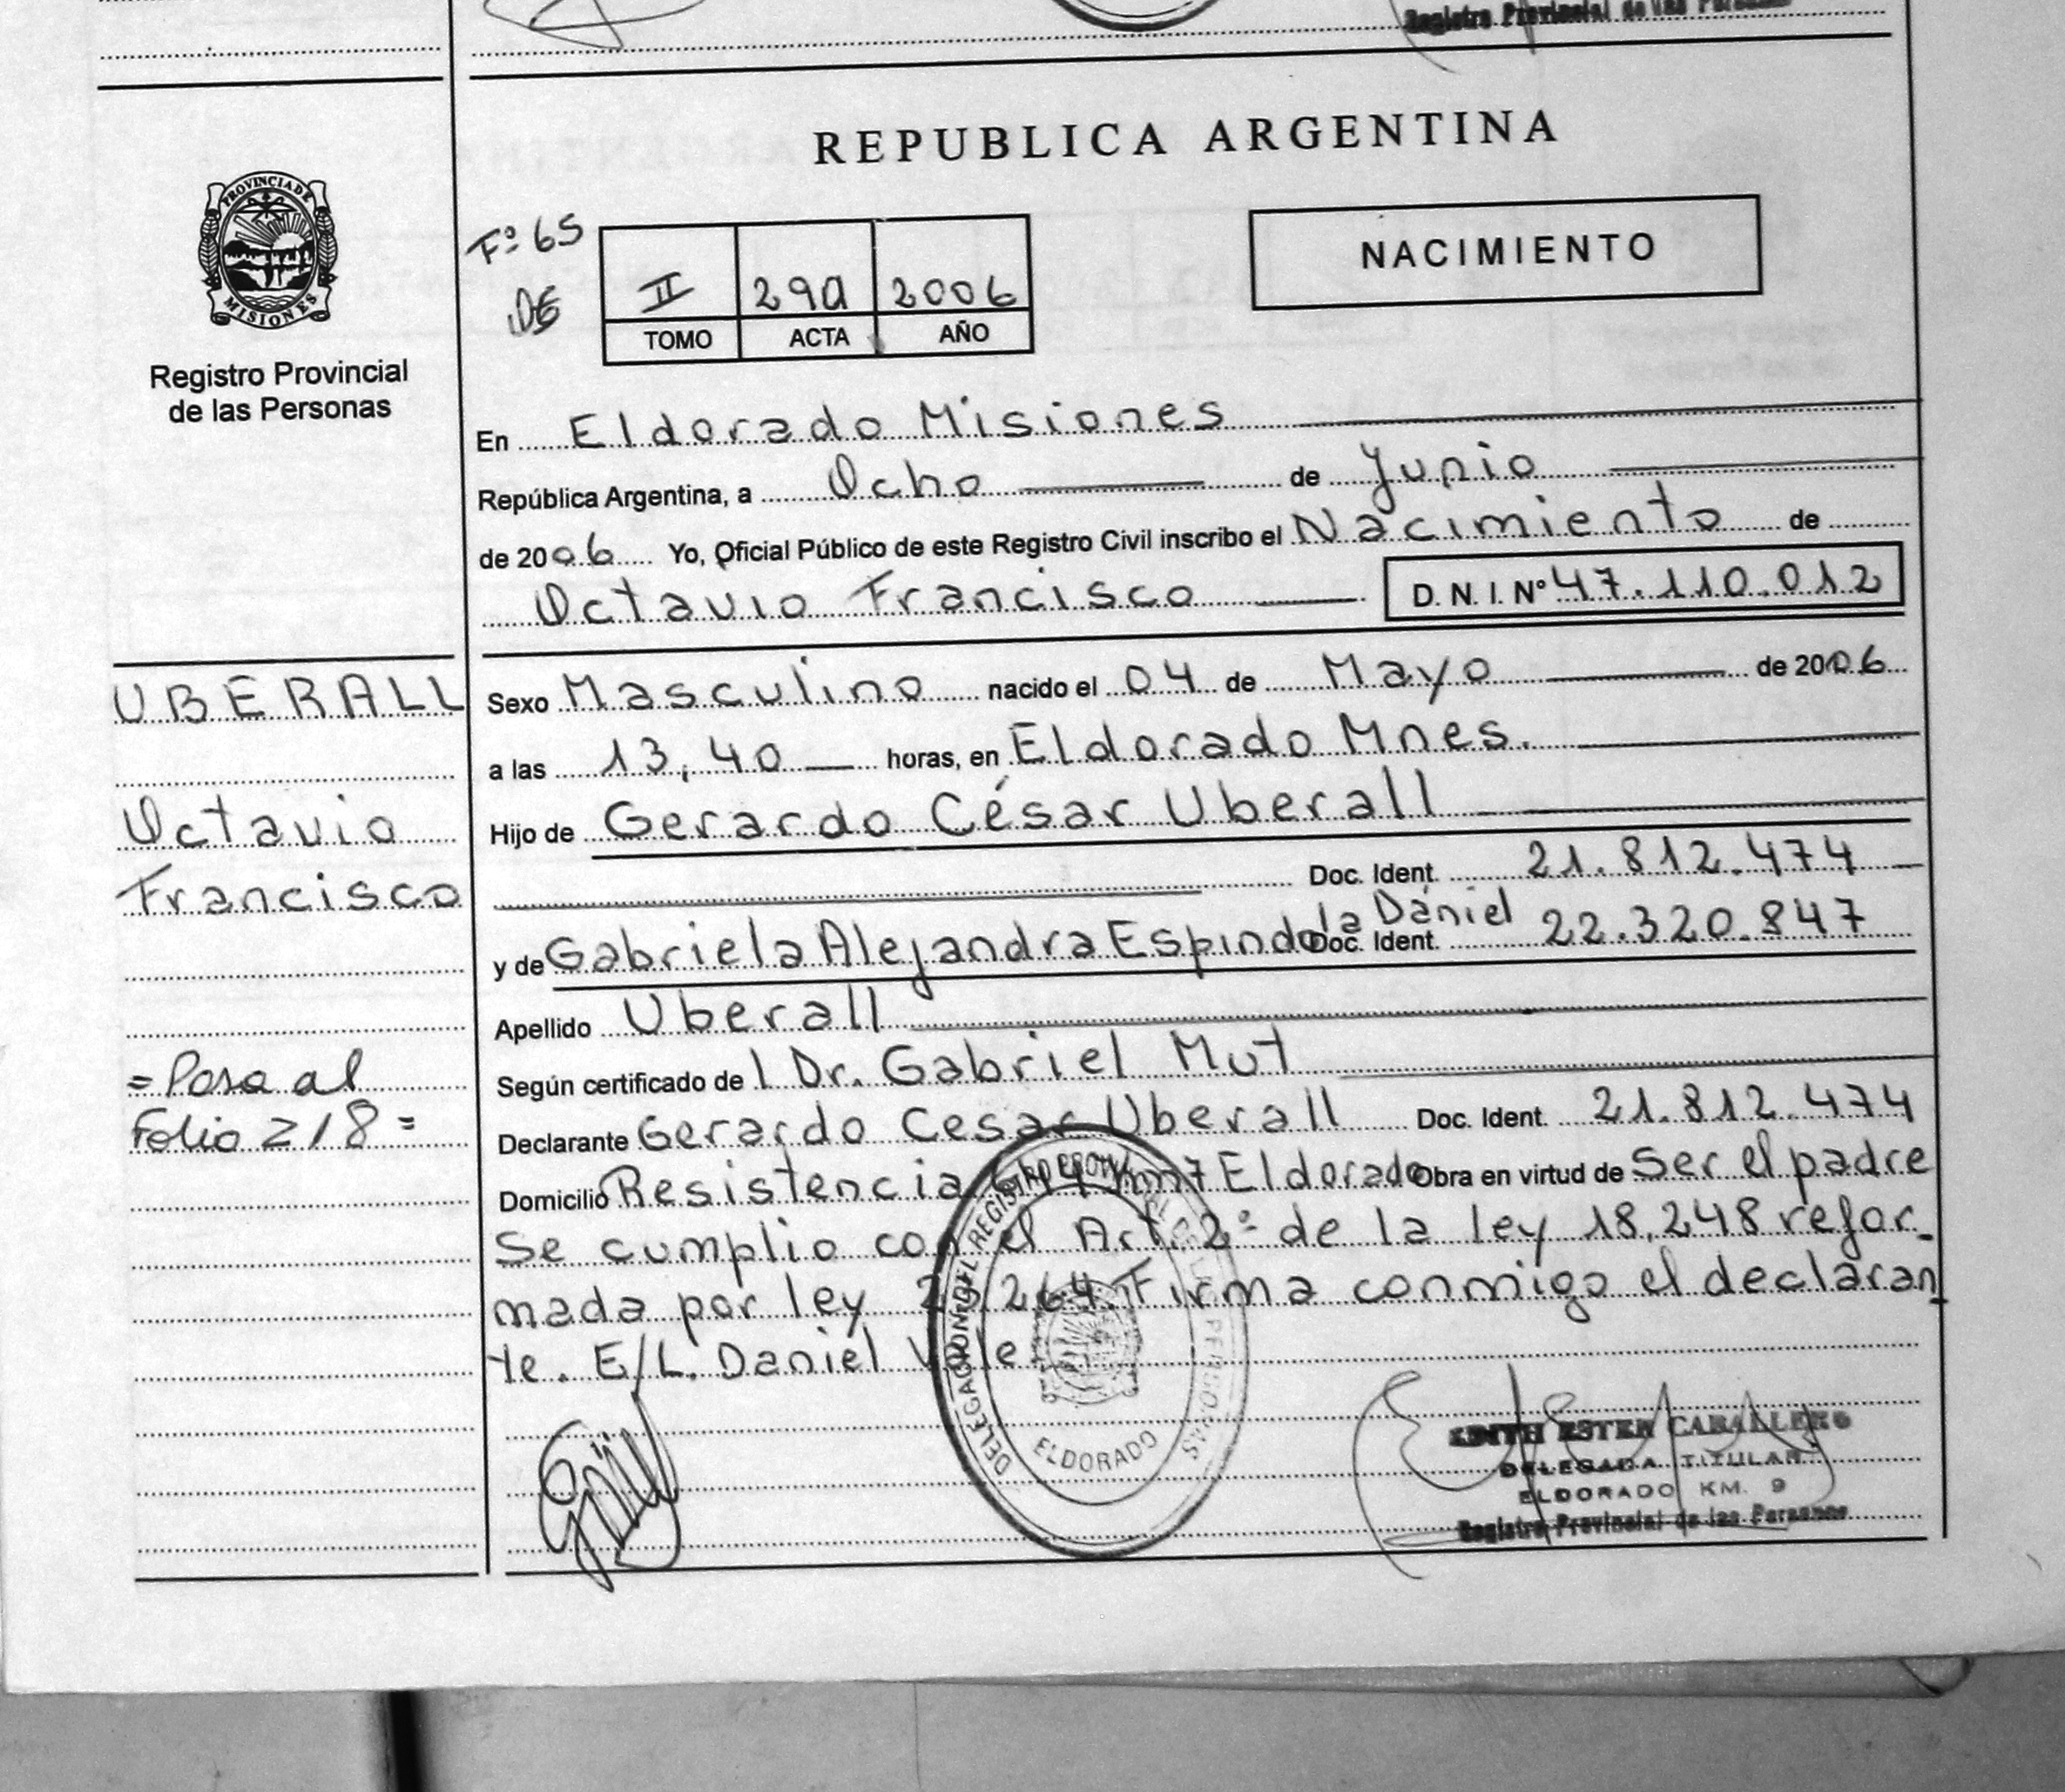 Registro Provincial de las Personas
REPUBLICA ARGENTINA
PROVINCIA DE
MISIONES
Registro Provincial
de las Personas
Fº 65
II 290 2006
TOMO ACTA AÑO
NACIMIENTO
En Eldorado Misiones
República Argentina, a Ocho de Junio
de 2006 Yo, Oficial Público de este Registro Civil inscribo el Nacimiento de
Octavio Francisco D. N. I. Nº 47.110.012
UBERALL
Octavio
Francisco
= Pasa al
Folio 218 =
Sexo Masculino nacido el 04 de Mayo de 2006
a las 13,40 horas, en Eldorado Mnes.
Hijo de Gerardo César Uberall
Doc. Ident. 21.812.474
y de Gabriela Alejandra Espindola Daniel Doc. Ident. 22.320.847
Apellido Uberall
Según certificado del Dr. Gabriel Mut
Declarante Gerardo Cesar Uberall Doc. Ident. 21.812.474
Domicilio Resistencia Eldorado Obra en virtud de Ser el padre
Se cumplio con el Art. 2º de la ley 18.248 refor-
mada por ley 23.264. Firma conmigo el declaran
te. E/L. Daniel Vale
DELEGACION DEL REGISTRO PROVINCIAL DE LAS PERSONAS
ELDORADO
EDITH ESTER CABALLERO
DELEGADA TITULAR
ELDORADO KM. 9
Registro Provincial de las Personas